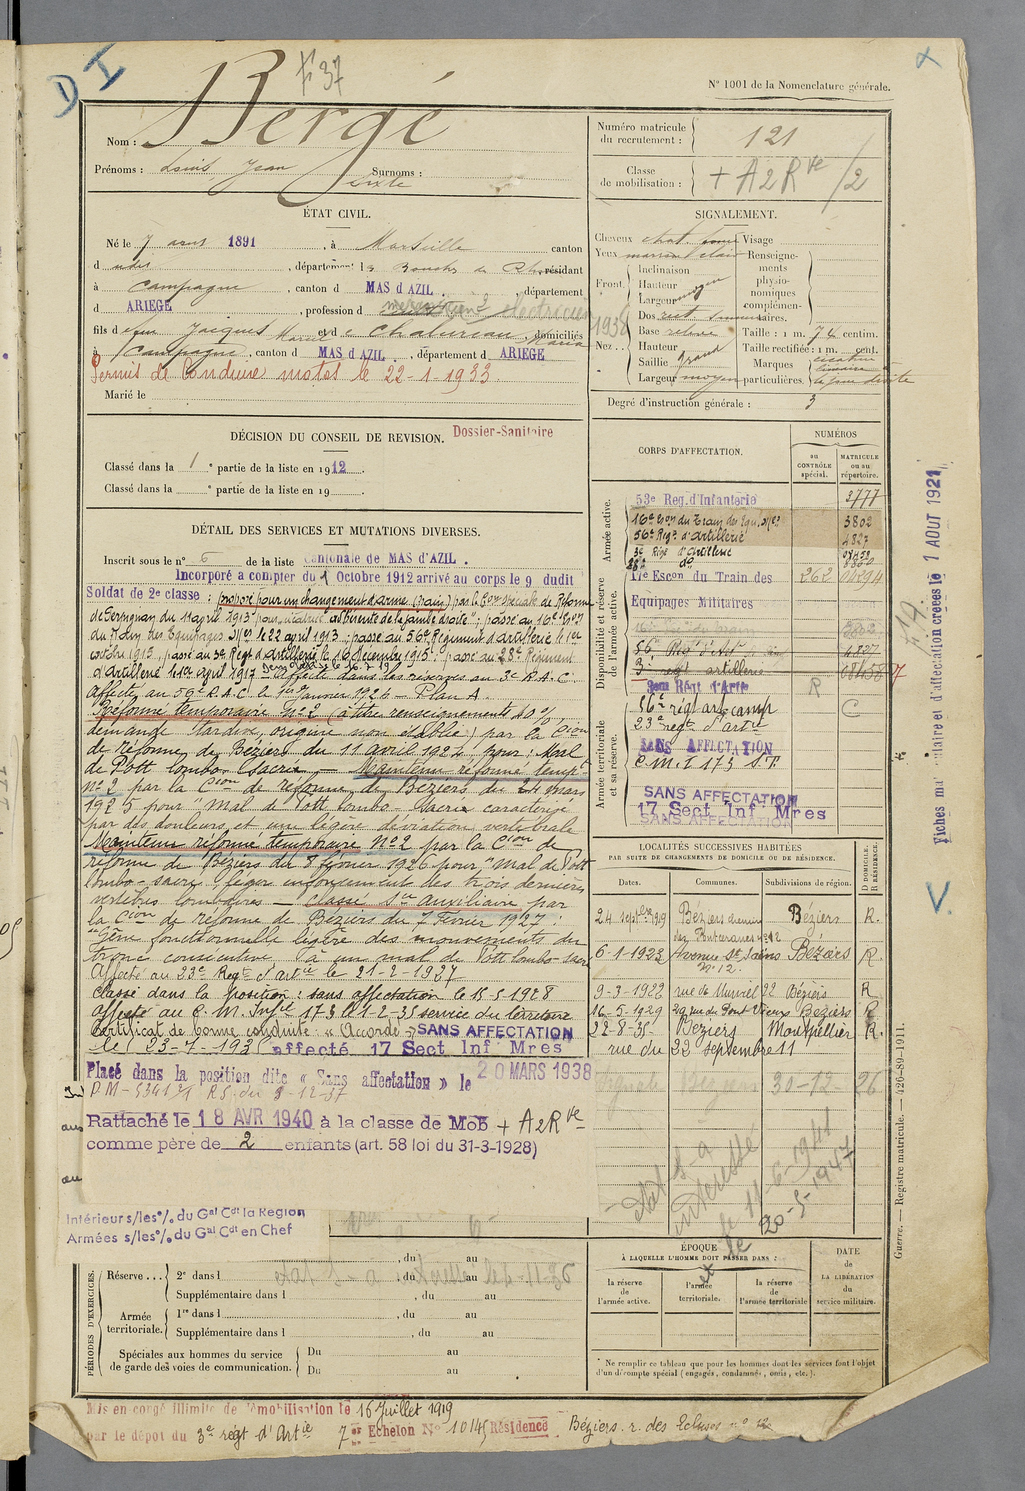 D I
F 37
N° 1001 de la Nomenclature générale.
Nom : Bergé
Prénoms : Louis Jean Sixte Surnoms :
Numéro matricule du recrutement : 121
Classe de mobilisation : + A2Rve /2
ÉTAT CIVIL.
Né le 7 aout 1891, à Marseille canton
d udes, département d Bouches du Rh, résidant
à Campagne, canton d MAS d'AZIL, département
d ARIEGE, profession d électricien
fils d feu Jacques Marcel et d e Chalureau Maria, domiciliés
à Campagne, canton d MAS d'AZIL, département d ARIEGE
Permis de Conduire motos le 22-1-1933.
Marié le
SIGNALEMENT.
Cheveux chat. foncé Visage
Yeux marron clair Renseigne-
ments
physio-
nomiques
complémen-
taires.
Front. Inclinaison
Hauteur moyen
Largeur
Nez. Dos rect. sinueux
Base relevée Taille : 1 m. 74 centim.
Hauteur Taille rectifiée : 1 m. cent.
Saillie grand Marques
Largeur moyen particulières. cicatrice linéaire à la joue droite
Degré d'instruction générale : 3
DÉCISION DU CONSEIL DE REVISION. Dossier-Sanitaire
Classé dans la 1e partie de la liste en 1912.
Classé dans la e partie de la liste en 19
DÉTAIL DES SERVICES ET MUTATIONS DIVERSES.
Inscrit sous le n° 6 de la liste Cantonale de MAS d'AZIL.
Incorporé a compter du 1 Octobre 1912 arrivé au corps le 9 dudit
Soldat de 2e classe : proposé pour un changement d'arme (train) par la Con spéciale de Réforme
de Perpignan du 11 avril 1913 pour "cicatrice adhérente de la jambe droite" ; passé au 16e Eon
du Train des Équipages Mres le 22 avril 1913 ; passé au 56e Régiment d'artillerie le 1er
octobre 1915, passé au 3e Régt d'artillerie le 16 décembre 1915 ; passé au 28e Régiment
d'artillerie le 1er août 1917 affecté dans les réserves au 3e R.A.C.
Affecté au 56e R.A.C. le 1er Janvier 1924 - Plan A.
Réformé temporaire N°2 (à titre renseignements 40 %
demande tardive, origine non établie) par la Cion
de réforme de Béziers du 11 avril 1924 pour : Mal
de Pott lombo-sacrée. - Maintenu réformé tempre
n°2 par la Cion de réforme de Béziers du 24 mars
1925 pour "mal de Pott lombo-sacré caractérisé
par des douleurs et une légère déviation vertébrale
Maintenu réformé temporaire N°2 par la Cion de
réforme de Béziers du 8 février 1926 pour "mal de Pott
lombo-sacré, léger enfoncement des trois dernières
vertèbres lombaires - Classé Sce Auxiliaire par
la Cion de réforme de Béziers du 7 Février 1927 :
"Gêne fonctionnelle légère des mouvements du
tronc consécutive à un mal de Pott lombo-sacré
Affecté au 23e Regt d'artie le 21-2-1927
Classé dans la position : sans affectation le 15-5-1928
affecté au C.M. Infie 173 le 1-2-35 service du territoire
Certificat de bonne conduite : "Accordé" SANS AFFECTATION
le 23-7-193 affecté 17 Sect Inf Mres
Placé dans la position dite « Sans affectation » le 20 MARS 1938
Rattaché le 18 AVR 1940 à la classe de Mob + A2Rve
comme père de 2 enfants (art. 58 loi du 31-3-1928)
Intérieur s/les % du Gal Cdt la Région
Armées s/les % du Gal Cdt en Chef
CORPS D'AFFECTATION.
NUMÉROS
au CONTRÔLE spécial.
MATRICULE ou au répertoire.
Armée active.
53e Reg. d'Infanterie 3777
16e Eon du Train des Equ. Mres 3802
56e Régt d'artillerie 4827
3e Régt d'artillerie
28e do
Disponibilité et réserve de l'armée active.
17e Escon du Train des 262
Equipages Militaires
56e Régt d'Art 4827
3e régt artillerie
3eme Régt d'Artie R
Armée territoriale et sa réserve.
56e régt art camp C
23e regt d'artie
SANS AFFECTATION
C.M.I 173 S.T.
SANS AFFECTATION
17 Sect Inf Mres
SANS AFFECTATION
Fiches matriculaire et d'affectation créées le 1 AOUT 1921
LOCALITÉS SUCCESSIVES HABITÉES
PAR SUITE DE CHANGEMENTS DE DOMICILE OU DE RÉSIDENCE.
Dates. Communes. Subdivisions de région. D DOMICILE. R RÉSIDENCE.
24 septbre 1919 Béziers chemin des Fontceranes n° 12 Béziers R.
6-1-1922 Avenue St Saëns N° 12. Béziers R
9-3-1922 rue de Murviel 22 Béziers R
16-5-1929 29 rue du Pont Vieux Béziers R
22-8-35 Béziers Montpellier R.
rue du 22 septembre 11
Béziers 30-12 26
intéressé
le 11-6-1941
20-5-1947
PÉRIODES D'EXERCICES.
, du au
Réserve... 2e dans l , du au
Supplémentaire dans l , du au
Armée territoriale. 1re dans l , du au
Supplémentaire dans l , du au
Spéciales aux hommes du service de garde des voies de communication. Du au
Du au
ÉPOQUE
À LAQUELLE L'HOMME DOIT PASSER DANS :
la réserve de l'armée active.
l'armée territoriale.
la réserve de l'armée territoriale
DATE DE LA LIBÉRATION du service militaire.
* Ne remplir ce tableau que pour les hommes dont les services font l'objet
d'un décompte spécial (engagés, condamnés, omis, etc.).
Guerre. — Registre matricule. — 426-89-1911.
Mis en congé illimité de démobilisation le 16 Juillet 1919
par le dépot du 3e régt d'Artie 7er Echelon N° 10145 Résidence Béziers r. des Ecluses n° 12